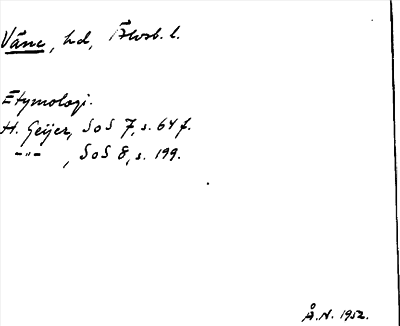 Väne, hd, Älvsb. l.
Etymologi.
H. Geijer, SoS 7, s. 64 f.
-"- , SoS 8, s. 199.
Å. N. 1952.